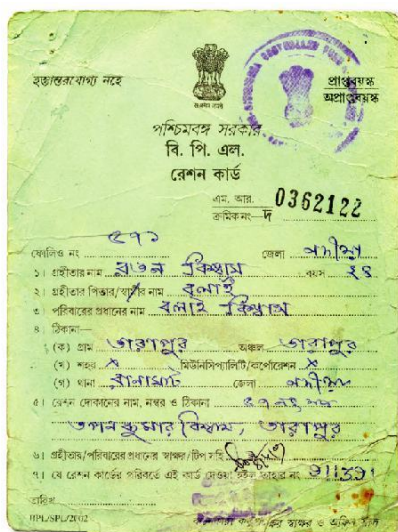 হস্তান্তরযোগ্য নহে
প্রাপ্তবয়স্ক
অপ্রাপ্তবয়স্ক
পশ্চিমবঙ্গ সরকার
বি. পি. এল.
রেশন কার্ড
এম. আর.
ক্রমিক নং—দ 0362122
ফোলিও নং ৫৭১ জেলা নদীয়া
১। গ্রহীতার নাম রতন বিশ্বাস বয়স ২৪
২। গ্রহীতার পিতার/স্বামীর নাম বলাই
৩। পরিবারের প্রধানের নাম বলাই বিশ্বাস
৪। ঠিকানা—
(ক) গ্রাম তারাপুর অঞ্চল তারাপুর
(খ) শহর X মিউনিসিপ্যালিটি/কর্পোরেশন X
(গ) থানা রানাঘাট জেলা নদীয়া
৫। রেশন দোকানের নাম, নম্বর ও ঠিকানা
তপন কুমার বিশ্বাস, তারাপুর
৬। গ্রহীতার/পরিবারের প্রধানের স্বাক্ষর/টিপ সহি
৭। যে রেশন কার্ডের পরিবর্তে এই কার্ড দেওয়া হইল তাহার নং
তারিখ
HPL/SPL/2002